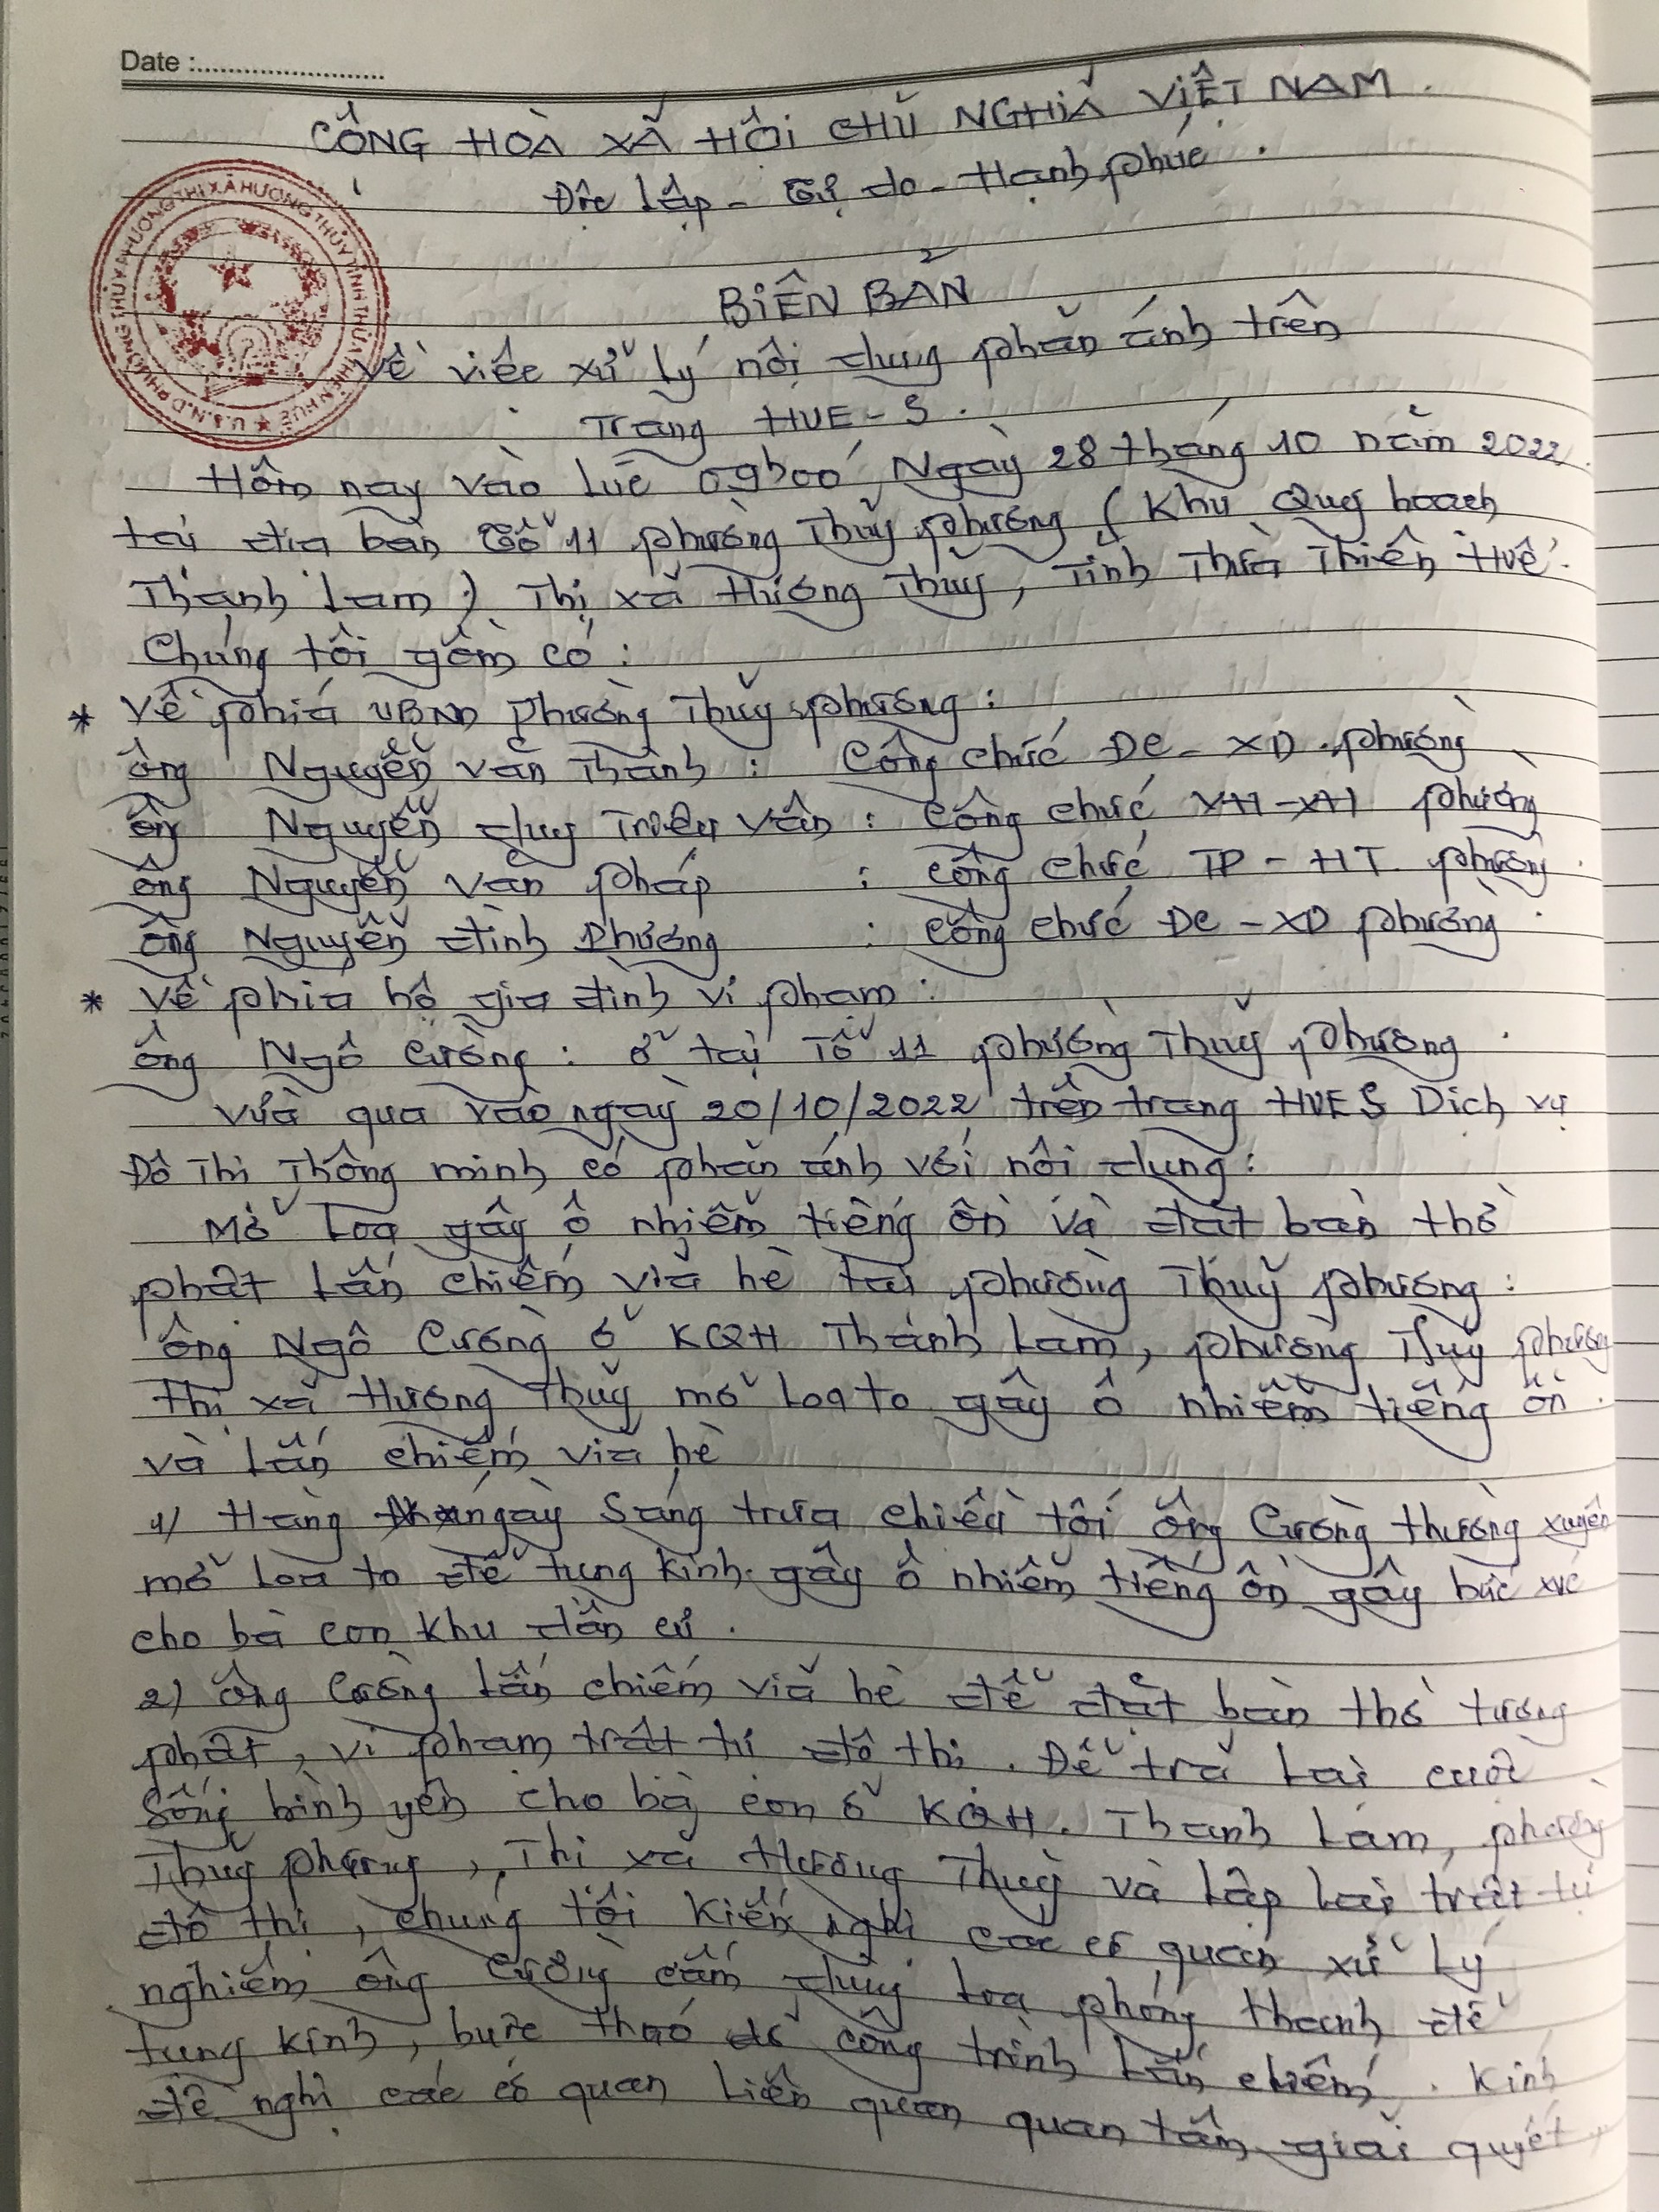 Date :
CỘNG HÒA XÃ HỘI CHỦ NGHĨA VIỆT NAM.
Độc lập - Tự do - Hạnh phúc.
U.B.N.D PHƯỜNG THỦY PHƯƠNG THỊ XÃ HƯƠNG THỦY TỈNH THỪA THIÊN HUẾ
BIÊN BẢN
Về việc xử lý nội dung phản ánh trên
Trang HUE-S.
Hôm nay vào lúc 09h00, Ngày 28 tháng 10 năm 2022.
tại địa bàn Tổ 11 phường Thủy phương (Khu Quy hoạch
Thanh Lam) Thị xã Hương Thủy, Tỉnh Thừa Thiên Huế.
Chúng tôi gồm có:
* Về phía UBND phường Thủy phương:
ông Nguyễn Văn Thành : Công chức ĐC-XD phường
ông Nguyễn duy Triêu Vân : Công chức VH-XH phường
ông Nguyễn Văn Pháp : công chức TP-HT phường.
ông Nguyễn đình Phương : công chức ĐC-XD phường.
* Về phía hộ gia đình vi phạm:
ông Ngô Cường: ở tại Tổ 11 phường Thủy phương.
Vừa qua vào ngày 20/10/2022 trên trang HUES Dịch vụ
Đô Thị Thông minh có phản ánh với nội dung:
Mở loa gây ô nhiễm tiếng ồn và đặt bàn thờ
phật lấn chiếm vỉa hè tại phường Thủy phương:
ông Ngô Cường ở KQH Thanh Lam, phường Thủy phương
Thị xã Hương Thủy mở loa to gây ô nhiễm tiếng ồn.
và lấn chiếm vỉa hè
1/ Hàng ngày sáng trưa chiều tối ông Cường thường xuyên
mở loa to để tụng kinh gây ô nhiễm tiếng ồn gây bức xúc
cho bà con khu dân cư.
2) ông Cường lấn chiếm vỉa hè để đặt bàn thờ tượng
phật, vi phạm trật tự đô thị. Để trả lại cuộc
sống bình yên cho bà con ở KQH. Thanh Lam, phường
Thủy phương, Thị xã Hương Thủy và lập lại trật tự
đô thị, chúng tôi kiến nghị các cơ quan xử lý
nghiêm ông Cường cấm dùng loa phóng thanh để
tụng kinh, buộc tháo dỡ công trình lấn chiếm. Kính
đề nghị các cơ quan liên quan quan tâm giải quyết